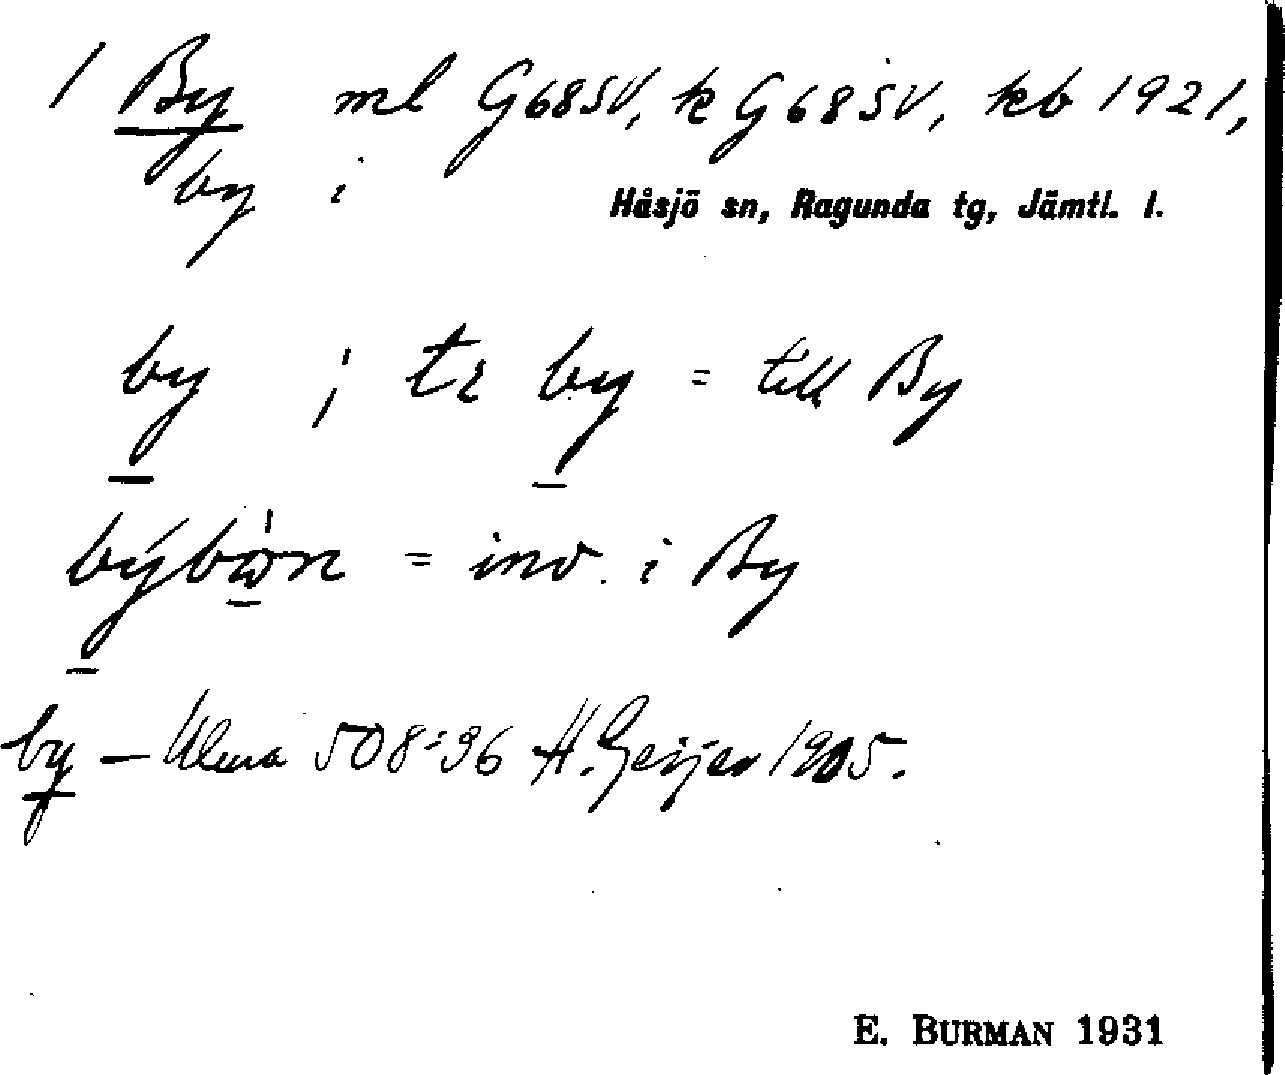 1 By ml G68SV, k G68SV, kb 1921,
by i Håsjö sn, Ragunda tg, Jämtl. l.
by ; tɪ by = till By
býbòn = inv. i By
by — Ulma 508:96 H. Geijer 1905.
E. BURMAN 1931